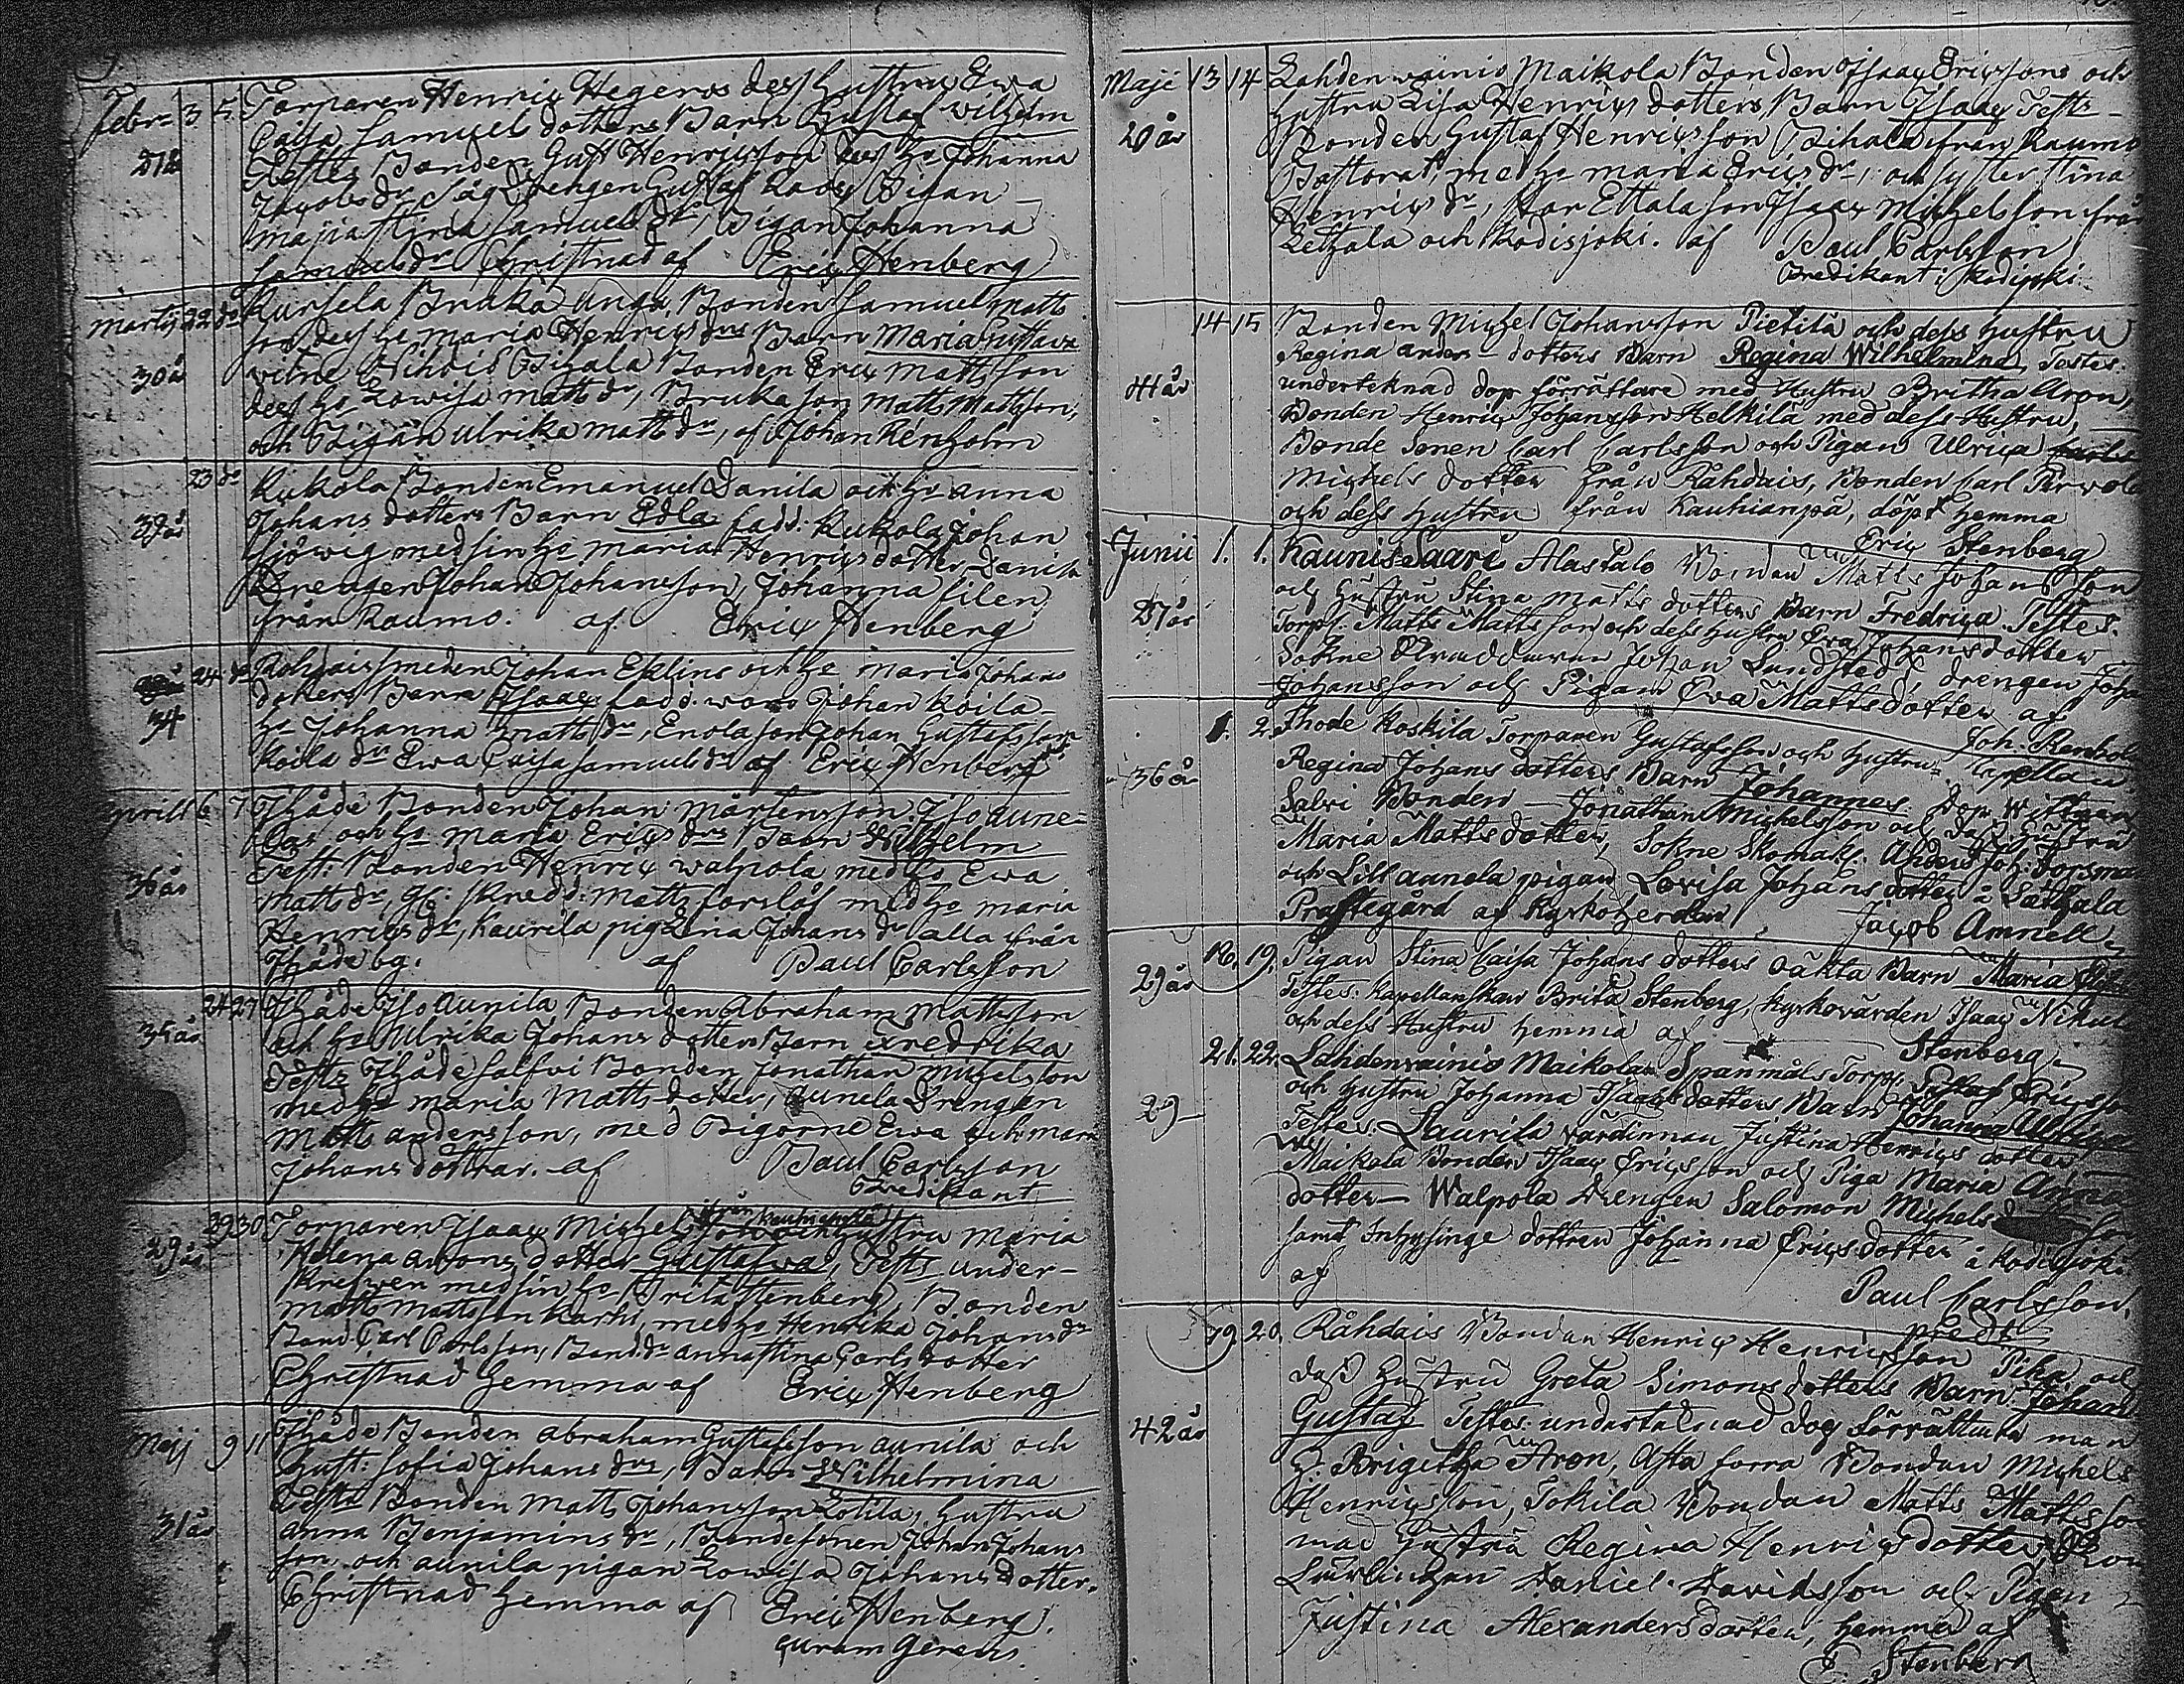 Febr. 3 5 Torparen Henric Hegeros dess hustru Ewa
Caisa Samuels dotters Barn Gustaf Wilhelm
Testes Bonden Gust Henricsson dess ho Johanna
Jacobs dr Såg drengen Gustaf Pigan
Maja Stina Samuels dr, Pigan Johanna
Samuels dr Christnad af Eric Stenberg
Martij 22 do Kursela Bruka unga Bonden Samuel Matts
son dess ho Maria Henrics drs Barn Maria Gustava
30 år Bonden Eric Mattsson
dess ho Lowisa Matts dr, Bruka son Matts Mattsson,
och Pigan Ulrika Matts dr, af Johan Renholm
23 do Kukola Bonden Emanuel Danila och ho Anna
39 år Johans dotters Barn Edla fadd. Kukola Johan
Sjöwig med sin ho Maria Henrics dotter, Danila
Drengen Johan Johansson, Johanna Silen
från Raumo. af Eric Stenberg
24 do smeden Johan Eklins och ho Maria Johans
34 dotters Barn Isaac fadd. woro Johan Koila
ho Johanna Matts dr, Enola son Johan Gustafsson
Koila dr Ewa Caisa Samuels dr af Eric Stenberg
Aprill 6 7 Ihåde Bonden Johan Mårtensson Iso aune=
las och ho Maria Erics drs Barn Wilhelm
36 år Test: Bonden Henric Walpola med ho Ewa
Matts dr, Skredd: Matts med ho Maria
Henrics dr, Kaurila pig Lena Johans dr alla från
Ihåde by. af Paul Carlsson
24 27 Ihåde Iso Aunila Bonden Abraham Mattsson
35 år och ho Ulrika Johans dotters Barn Fredrika
Testes Ihåde Salfvi Bonden Jonathan Michelsson
med ho Maria Matts dotter, Aunela Drengen
Matts Andersson, med Pigorne Ewa och Maria
Johans döttrar. af Paul Carlsson
Predikant
29 30 Torparen Isaac Michelsson från och hustru Maria
29 år Helena Antons dotter Gustafwa, Tests under-
skrefwen med sin ho Brita Stenberg, Bonden
Matts Mattsson Karhi, med ho Henrika Johans dr
Bond Carl Carlsson, Bond. dr Anna Stina Carls dotter
Christnad hemma af Eric Stenberg
Maji 9 11 Ihåde Bonden Abraham Gustafsson Aunila och
hust: Sofia Johans drs, Barn Wilhelmina
Tests Bonden Matts Johansson Sotila, hustru
31 år Anna Benjamins dr, Bondesonen Johan Johans
son, och Aunila pigan Lowisa Johans dotter.
Christnad hemma af Eric Stenberg
curam gerens
Maji 13 14 Lahdenwainio Maikola Bonden Isaac Ericssons och
20 år hustru Lisa Henrics dotters, Barn Isaac Tests -
Bonden Gustaf Henricsson från Raumo
Pastorat, med ho Maria Erics dr, och syster Stina
Henrics dr, Ettala son Isaac Michelsson från
Letzala och Kodisjoki. af Paul Carlsson
Predikant i Kodisjoki.
14 15 Bonden Michel Johansson Pietilä och dess hustru
Regina Anders dotters Barn Regina Wilhelmina, Testes:
41 år undertecknad dop förrättare med Hustru Britha Aron,
Bonden Henric Johansson Heikilä med dess Hustru,
Bonde Sonen Carl Carlsson och Pigan Ulrica
Michels dotter från Råhdais, Bonden Carl
och dess hustru från Kauhianpä, döpt hemma
Eric Stenberg
Junii 1. 1. Kaunissaari Alastalo Bonden Matts Johansson
och hustru Stina Matts dotters Barn Fredrica. Testes.
27 år Torp. Matts Mattsson och dess hustru Eva Johansdotter
Sokne Johan Lundstedt drengen Johan
Johansson och Pigan Eva Mattsdotter af
Joh. Renholm
Capellan
1. 2. Ihode Koskila Torparen Gustafsson och hustru
36 år Regina Johans dotters Barn Johannes. Dop Wittnen
Salvi Bonden - Jonathan Michelsson och dess hustru
Maria Matts dotter, Sokne Skomak. Anders Joh. Forsman
och Lill aunela pigan Lovisa Johans dotter i Letzala
Prästegård af Kyrkoherden Jacob Amnell
16. 19. Pigan Stina Caisa Johans dotters oäkta Barn Maria
29 år Testes: Kapellanskan Brita Stenberg, Kyrkovärden Isaac
och dess Hustru hemma af Stenberg
21. 22. Lahdenvainio Maikolan Spanmåls Torp. Gustaf Ericsson
och hustru Johanna Isaacs dotters Barn Johanna Ulrica
29 Testes: Laurila värdinnan Justina Henrics dotter,
Maikola Bonden Isaac Ericsson och Piga Maria Anna
dotter - Walpola drengen Salomon Michels son
samt Inhysinge dottren Johanna Ericsdotter i Kodisjoki
af Paul Carlsson,
pred.
19 20. Råhdais Bonden Henric Henricsson Pika och
dess hustru Greta Simons dotters Barn. Johan
42 år Gustaf Testes: undertecknad dop förrättare med
h. Brigitha Aron, Bonden Michels
Henricsson, Sokila Bonden Matts Mattsson
med hustru Regina Henricsdotter,
Lärlingen Daniel Davidsson och Pigan
Justina Alexandersdotter, hemma af
E. Stenberg